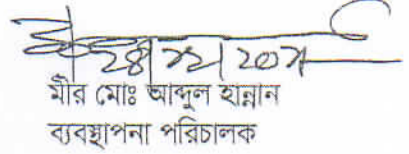 মীর মোঃ আব্দুল হান্নান
ব্যবস্থাপনা পরিচালক